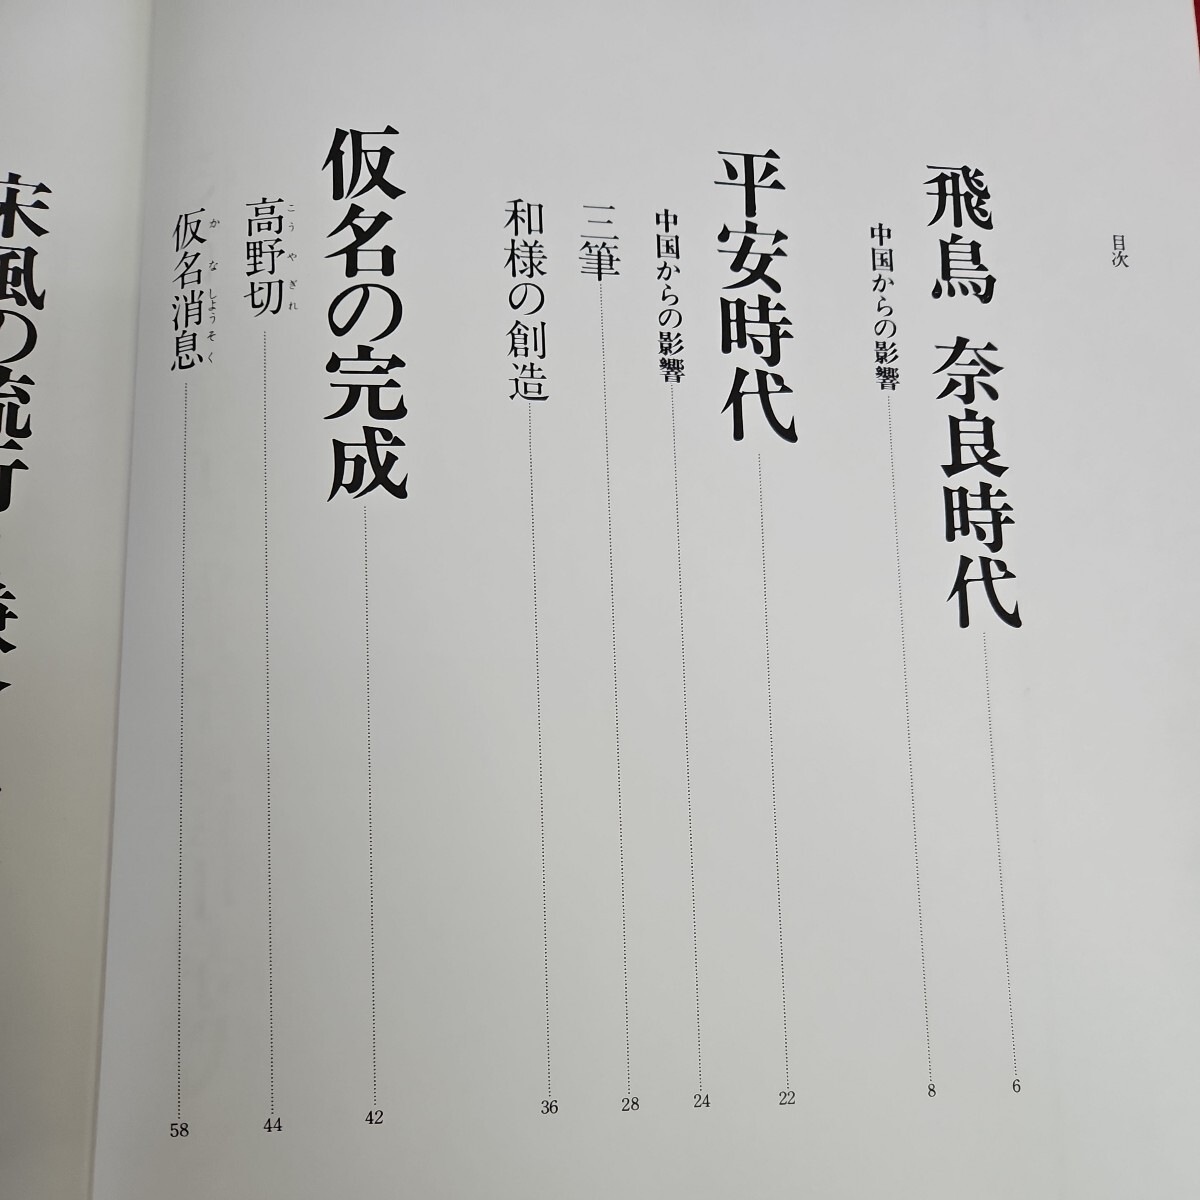 目次
飛鳥 奈良時代 6
中国からの影響 8
平安時代 22
中国からの影響 24
三筆 28
和様の創造 36
仮名の完成 42
高野切 こうやぎれ 44
仮名消息 かなしようそく 58
宋風の流行